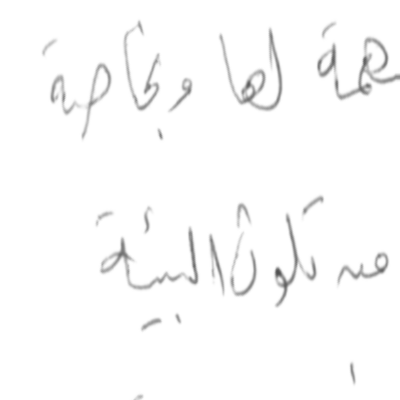 لها وبخاصة
من تلوث البيئة